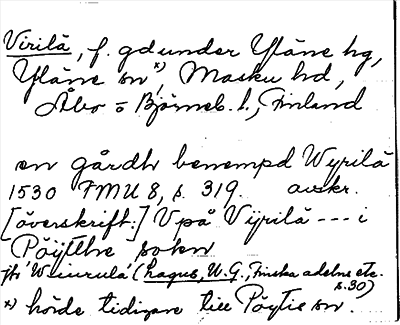 Virilä, f. gd under Yläne hg,
Yläne sn x), Masku hd,
Åbo o Björneb. l., Finland
en gårdh benempd Wyrilä
1530 FMU 8, s. 319. avskr.
[överskrift:] V på Virilä --- i
Pöytthe soken
jfr (Lagus, W. G., Finska adelns etc.
s. 30)
x) hörde tidigare till Pöytis sn.